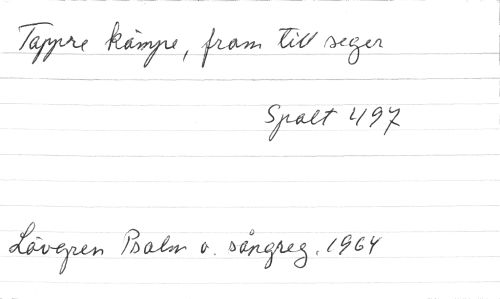 Tappre kämpe, fram till seger
Spalt 497
Lövgren Psalm o. sångreg. 1964